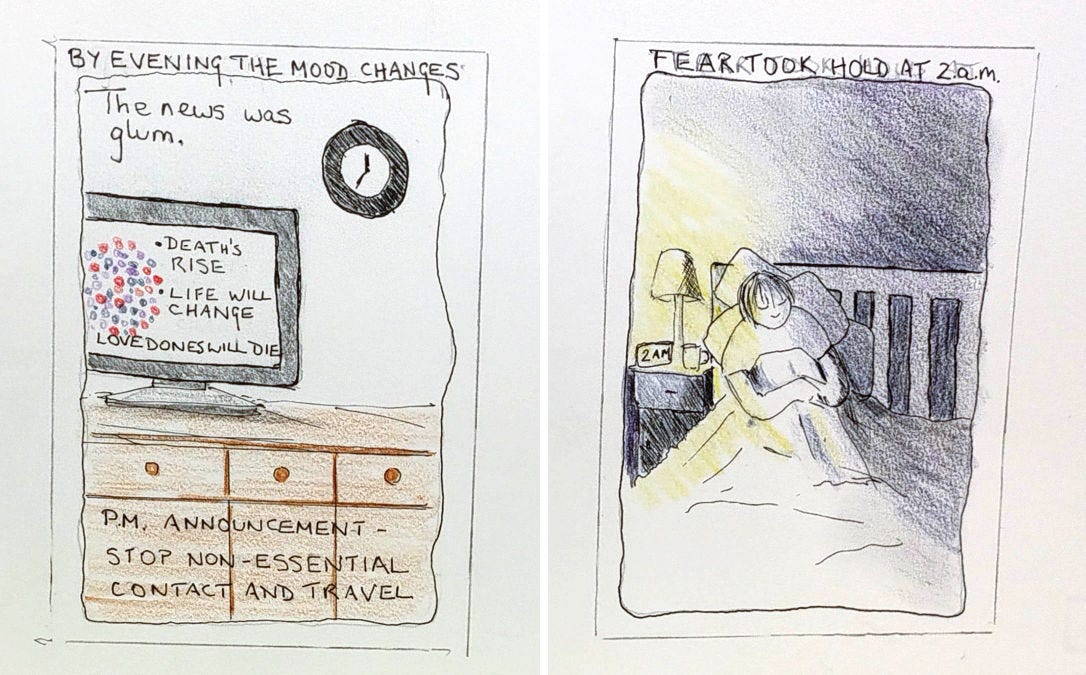 BY EVENING THE MOOD CHANGES
The news was
glum.
• DEATH'S
RISE
• LIFE WILL
CHANGE
LOVEDONES WILL DIE
P.M. ANNOUNCEMENT -
STOP NON-ESSENTIAL
CONTACT AND TRAVEL
FEAR TOOK HOLD AT 2.a.m.
2AM